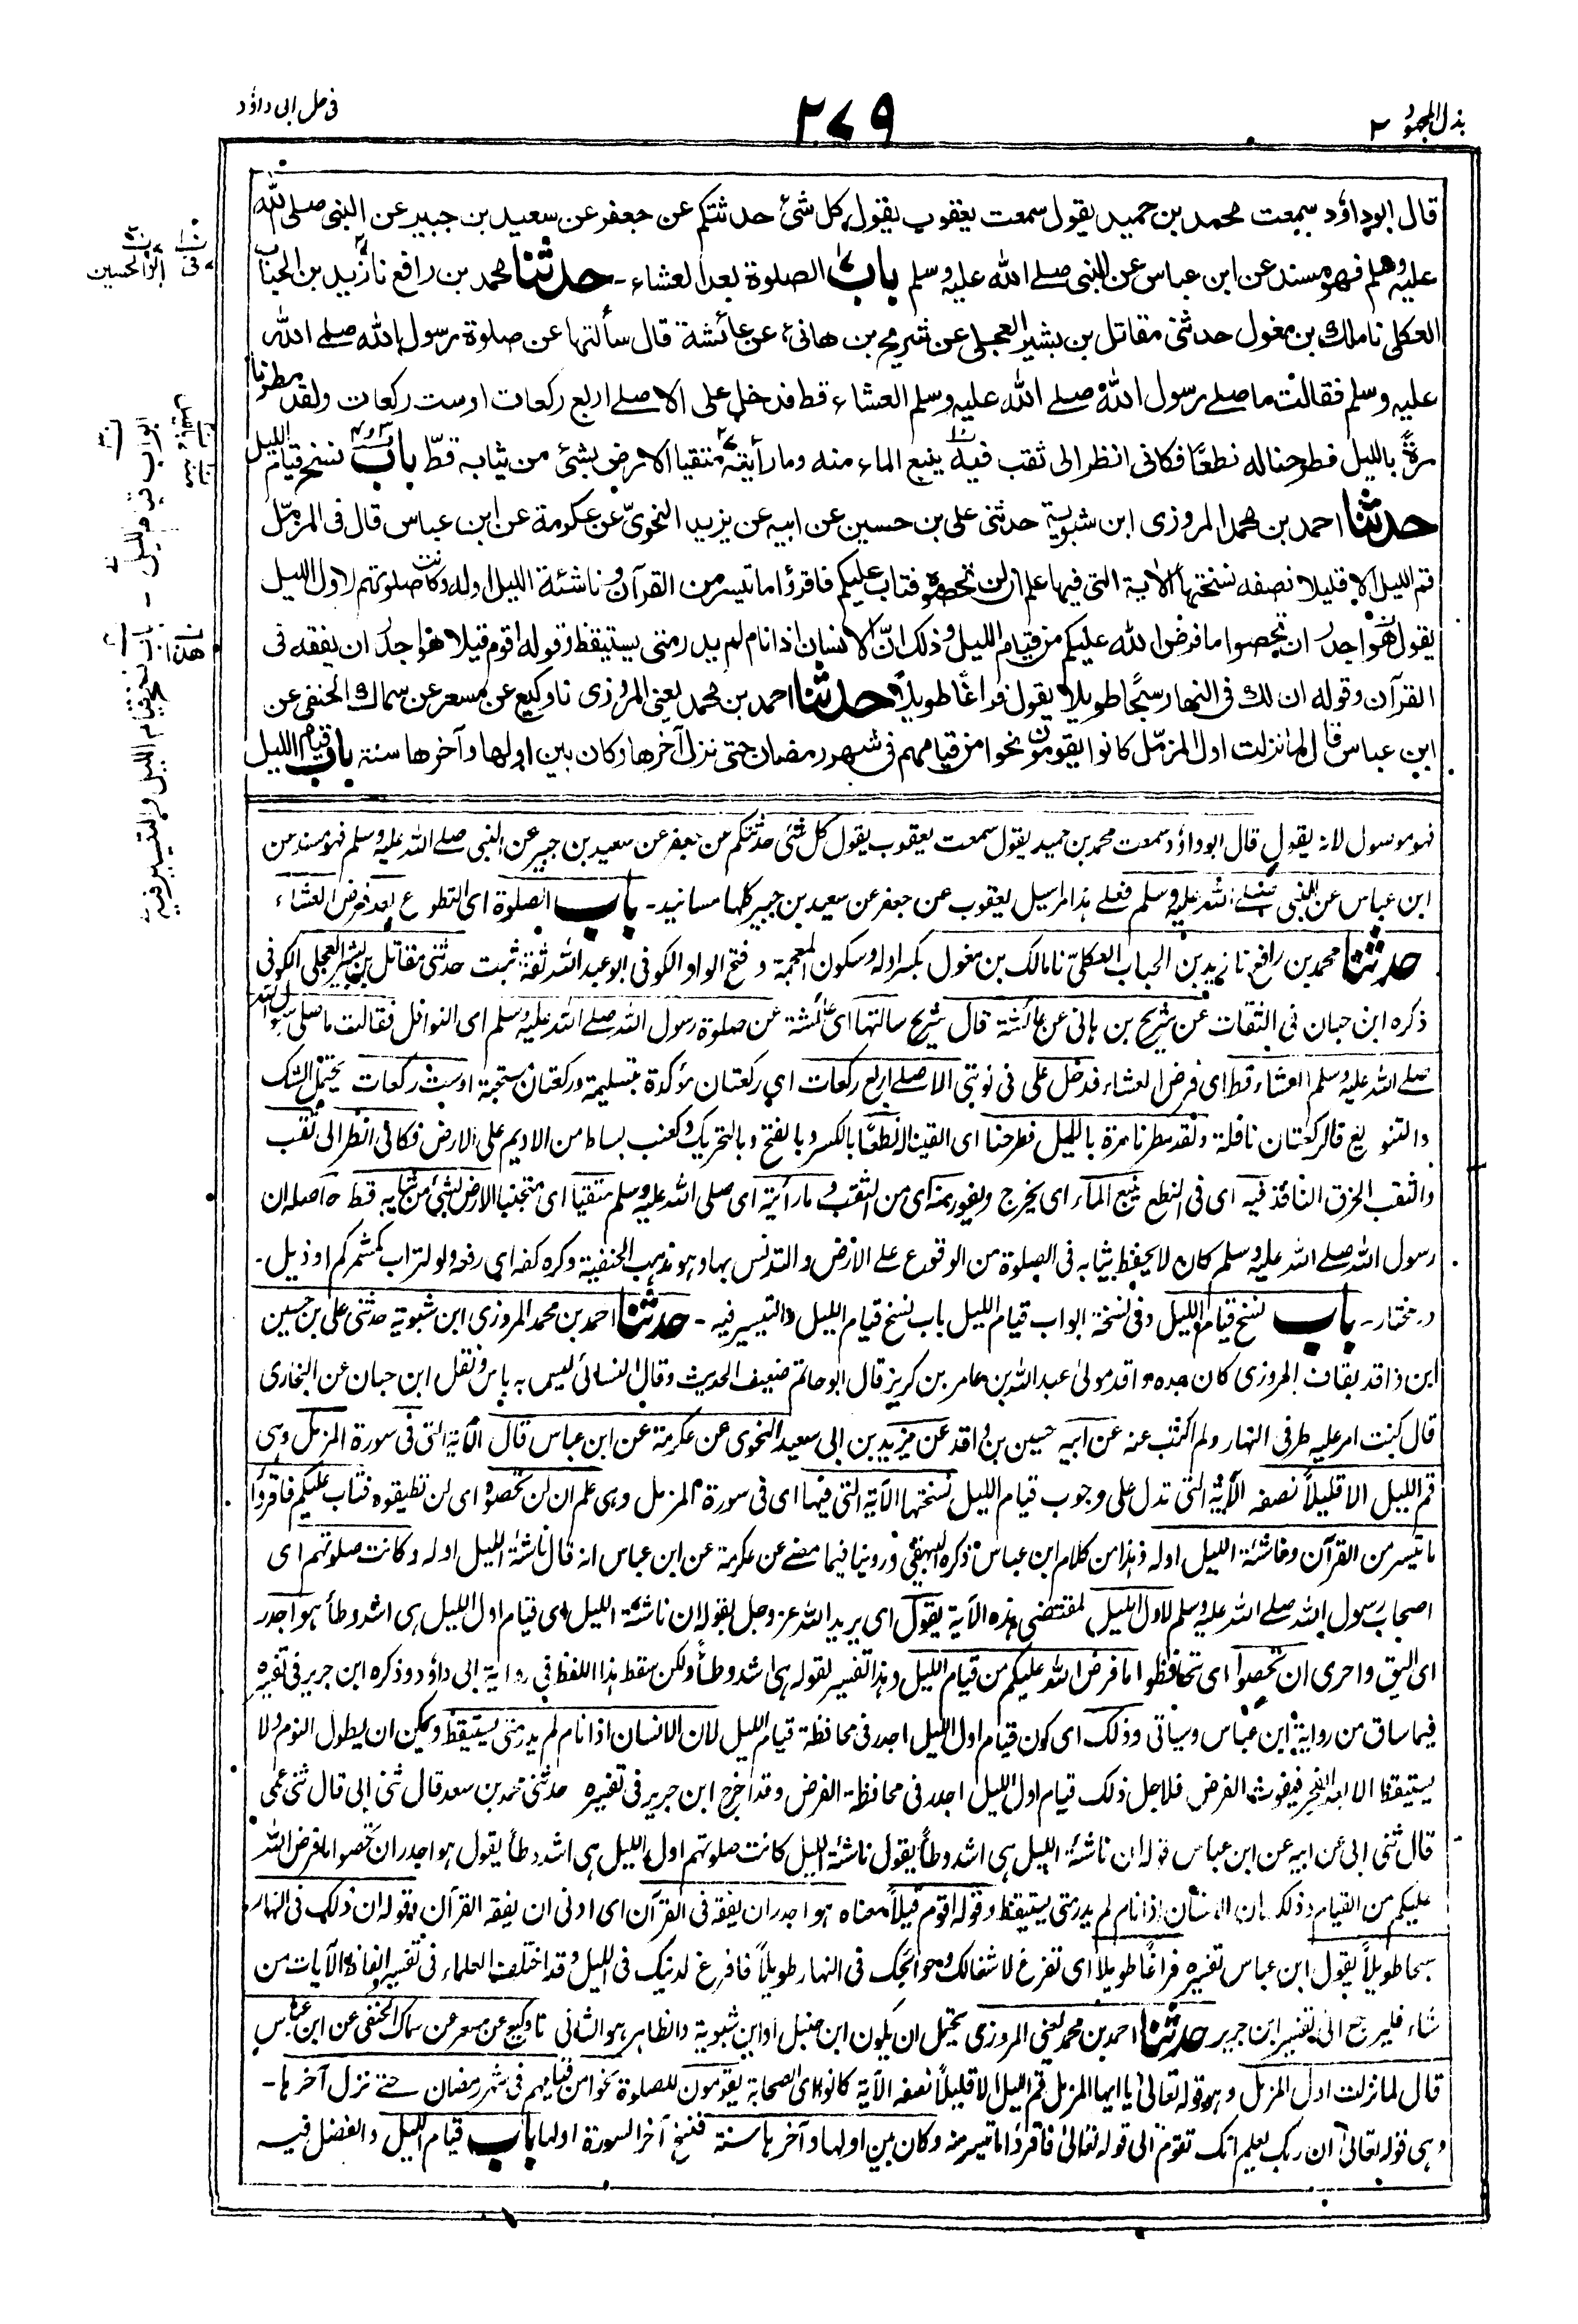 بذل المجهود ٢
٢٧٩
فى حل ابى داؤد
قال ابوداؤد سمعت محمد بن حميد يقول سمعت يعقوب يقول كل شئ حدثتكم عن جعفر عن سعيد بن جبير عن النبى صلى الله
عليه وسلم فهو مسند عن ابن عباس عن النبى صلے الله عليه وسلم باب الصلوة بعد العشاء - حدثنا محمد بن رافع نا زيد بن الحباب
العكلى نا ملك بن مغول حدثنى مقاتل بن بشير العجلى عن شريح بن هانئ عن عائشة قال سألتها عن صلوة رسول الله صلے الله
عليه وسلم فقالت ما صلے رسول الله صلے الله عليه وسلم العشاء قط فدخل على الا صلے اربع ركعات او ست ركعات ولقد مطرنا
مرة بالليل فطرحنا له نطعًا فكانى انظر الى ثقب فيه ينبع الماء منه وما رأيته متقيا الارض بشئ من ثيابه قطّ باب نسخ قيام الليل
حدثنا احمد بن محمد المروزى ابن شبوية حدثنى على بن حسين عن ابيه عن يزيد النحوىّ عن عكرمة عن ابن عباس قال فى المزمّل
قم الليل الا قليلا نصفه نسختها الآية التى فيها علم ان لن تحصوه فتاب عليكم فاقرؤا ما تيسر من القرآن وناشئة الليل اوله وكانت صلوتهم لاول الليل
يقول هو اجدر ان تحصوا ما فرض الله عليكم من قيام الليل وذلك انّ الانسان اذا نام لم يدر متى يستيقظ وقوله اقوم قيلا هو اجدر ان يفقه فى
القرآن وقوله ان لك فى النهار سبحًا طويلا يقول فراغًا طويلاً حدثنا احمد بن محمد يعنى المروزى نا وكيع عن مسعر عن سماك الحنفى عن
ابن عباس قال لما نزلت اول المزمّل كانوا يقومون نحوا من قيامهم فى شهر رمضان حتى نزل آخرها وكان بين اولها وآخرها سنة باب قيام الليل
فى
ابو الحسين
ابواب قيام الليل - باب نسخ قيام الليل والتيسير فيه
هذا
فهو موسول لانه يقول قال ابوداؤد سمعت محمد بن حميد يقول سمعت يعقوب يقول كل شئى حدثتكم عن جعفر عن سعيد بن جبير عن النبى صلے الله عليه وسلم فهو مسند من
ابن عباس عن النبى صلے الله عليه وسلم فعلے هذا مراسيل يعقوب عن جعفر عن سعيد بن جبير كلها مسانيد - باب الصلوة اى التطوع بعد فرض العشاء
حدثنا محمد بن رافع نا زيد بن الحباب العكلىّ نا مالك بن مغول بكسر اوله وسكون المعجمة وفتح الواو الكوفى ابو عبد الله ثقة ثبت حدثنى مقاتل بن بشير العجلى الكوفى
ذكره ابن حبان فى الثقات عن شريح بن هانى عن عائشة قال شريح سالتها اى عائشة عن صلوة رسول الله صلے الله عليه وسلم اى النوافل فقالت ما صلى رسول الله
صلے الله عليه وسلم العشاء قط اى فرض العشاء فدخل على فى نوبتى الا صلے اربع ركعات اى ركعتان مؤكدة بتسليمة وركعتان مستحبة او ست ركعات يحتمل الشك
والتنويع فالركعتان نافلة ولقد مطرنا مرة بالليل فطرحنا اى القينا له نطعًا بالكسر وبالفتح وبالتحريك وكعنب بساط من الاديم على الارض فكانى انظر الى ثقب
والثقب الخرق النافذ فيه اى فى النطع ينبع الماء اى يخرج ويفور منه اى من الثقب وما رأيته اى صلى الله عليه وسلم متقيا اى مجتنبا الارض بشئ من ثيابه قط حاصله ان
رسول الله صلے الله عليه وسلم كان لا يحفظ ثيابه فى الصلوة من الوقوع على الارض والتدنس بها وهو مذهب الحنفية وكره كفه اى رفعه ولو لتراب كمشمر كم او ذيل -
در مختار - باب نسخ قيام الليل وفى نسخة ابواب قيام الليل باب نسخ قيام الليل والتيسير فيه - حدثنا احمد بن محمد المروزى ابن شبوية حدثنى على بن حسين
ابن واقد بقاف المروزى كان جده واقد مولى عبد الله بن عامر بن كريز قال ابو حاتم ضعيف الحديث وقال النسائى ليس به باس ونقل ابن حبان عن البخارى
قال كنت امر عليه طرفى النهار ولم اكتب عنه عن ابيه حسين بن واقد عن يزيد بن ابى سعيد النحوى عن عكرمة عن ابن عباس قال الآية التى فى سورة المزمل وهى
قم الليل الا قليلاً نصفه الآية التى تدل على وجوب قيام الليل نسختها الآية التى فيها اى فى سورة المزمل وهى علم ان لن تحصوه اى لن تطيقوه فتاب عليكم فاقرؤا
ما تيسر من القرآن وناشئة الليل اوله وهذا من كلام ابن عباس ذكره البيهقى وروينا فيما مضے عن عكرمة عن ابن عباس انه قال ناشئة الليل اوله وكانت صلوتهم اى
اصحاب رسول الله صلے الله عليه وسلم لاول الليل لمقتضى هذه الآية يقول اى يريد الله عز وجل بقوله ان ناشئة الليل اى قيام اول الليل هى اشد وطأ هو اجدر
اى اليق واحرى ان تحصوا اى تحافظوا ما فرض الله عليكم من قيام الليل وهذا تفسير لقوله هى اشد وطأ ولكن سقط هذا اللفظ فى رواية ابى داؤد وذكره ابن جرير فى تفسيره
فيما ساق من رواية ابن عباس وسياتى وذلك اى كون قيام اول الليل اجدر فى محافظة قيام الليل لان الانسان اذا نام لم يدر متى يستيقظ ويمكن ان يطول النوم ولا
يستيقظ الا بعد الفجر فيفوته الفرض فلاجل ذلك قيام اول الليل اجدر فى محافظة الفرض وقد اخرج ابن جرير فى تفسيره حدثنى محمد بن سعد قال ثنى ابى قال ثنى عمى
قال ثنى ابى عن ابيه عن ابن عباس قوله ان ناشئة الليل هى اشد وطأ يقول ناشئة الليل كانت صلوتهم اول الليل هى اشد وطأ يقول هو اجدر ان تحصوا ما فرض الله
عليكم من القيام وذلك ان الانسان اذا نام لم يدر متى يستيقظ وقوله اقوم قيلاً معناه هو اجدر ان يفقه فى القرآن اى ادنى ان يفقه القرآن وقوله ان لك فى النهار
سبحا طويلاً يقول ابن عباس تفسيره فراغًا طويلا اى تفرغ لاشغالك وحوائجك فى النهار طويلاً فافرغ لدينك فى الليل وقد اختلف العلماء فى تفسير الفاظ الآيات من
شاء فليرجع الى تفسير ابن جرير حدثنا احمد بن محمد يعنى المروزى يحتمل ان يكون ابن حنبل او ابن شبوية والظاهر هو الثانى نا وكيع عن مسعر عن سماك الحنفى عن ابن عباس
قال لما نزلت اول المزمل وهو قوله تعالى يا ايها المزمل قم الليل الا قليلاً نصفه الآية كانوا اى الصحابة يقومون للصلوة نحوا من قيامهم فى شهر رمضان حتے نزل آخرها -
وهى قوله تعالى ان ربك يعلم انك تقوم الى قوله تعالى فاقرؤا ما تيسر منه وكان بين اولها وآخرها سنة فنسخ آخر السورة اولها باب قيام الليل والفضل فيه